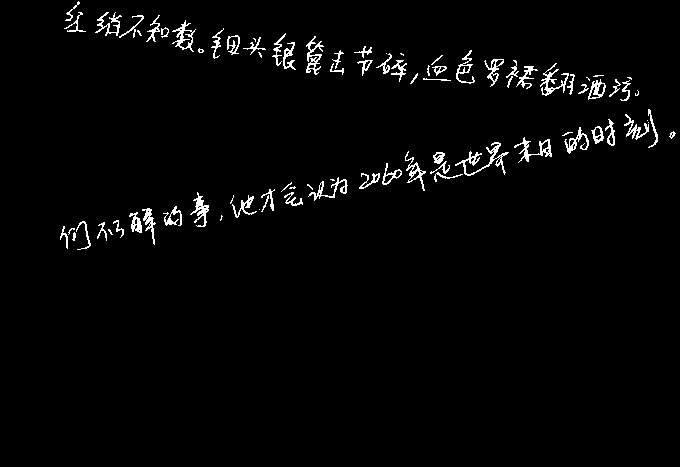 红绡不知数。钿头银篦击节碎,血色罗裙翻酒污。
们不解的事,他才会认为2060年是世界末日的时刻。